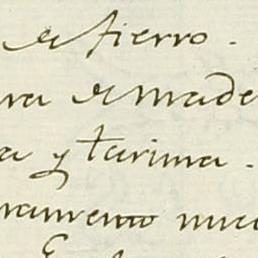 de fierro.
ra de made
a y tarima.
ramento nue